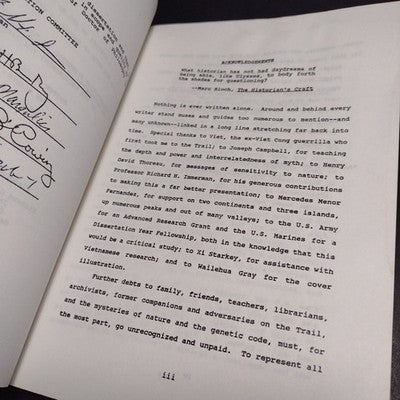 dissertation on the
in scope and
Doctor of Philosophy
TION COMMITTEE
an
ACKNOWLEDGEMENTS
What historian has not had daydreams of
being able, like Ulysses, to body forth
the shades for questioning?
--Marc Bloch, The Historian's Craft
Nothing is ever written alone. Around and behind every
writer stand muses and guides too numerous to mention--and
many unknown--linked in a long line stretching far back into
time. Special thanks to Viet, the ex-Viet Cong guerrilla who
first took me to the Trail; to Joseph Campbell, for teaching
the depth and power and interrelatedness of myth; to Henry
David Thoreau, for messages of sensitivity to nature; to
Professor Richard H. Immerman, for his generous contributions
to making this a far better presentation; to Marcedes Menor
Fernander, for support on two continents and three islands,
up numerous peaks and out of many valleys; to the U.S. Army
for an Advanced Research Grant and the U.S. Marines for a
Dissertation Year Fellowship, both in the knowledge that this
would be a critical study; to Xi Starkey, for assistance with
Vietnamese research; and to Wailehua Gray for the cover
illustration.
Further debts to family, friends, teachers, librarians,
archivists, former companions and adversaries on the Trail,
and the mysteries of nature and the genetic code, must, for
the most part, go unrecognized and unpaid. To represent all
iii